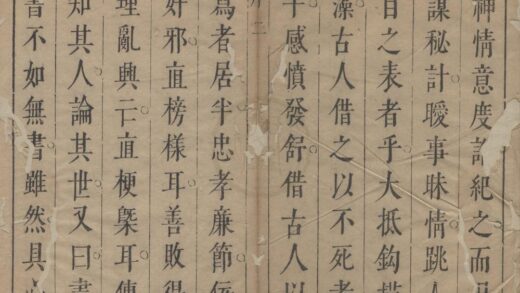 神情意度紀之而
謀秘計曖事昧情跳
日之表者乎大抵鈎
藻古人借之以不死者
十感憤發舒借古人以
二
爲者居半忠孝廉節
奸邪直榜樣耳善敗得
理亂興亡直梗槩耳傳
知其人論其世又曰書
書不如無書雖然具